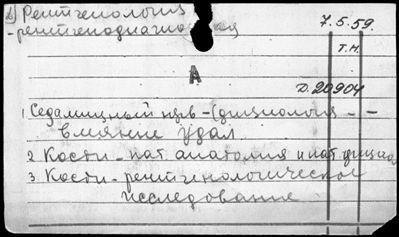 Рентгенология
7.5.59.
-рентгенодиагностика
т.н.
А
Д. 20904
1 Седалищный нерв - (физиология - -
влияние удал.
2 Кости - пат. анатомия и пат. физиол
3 Кости - рентгенологическое
исследование